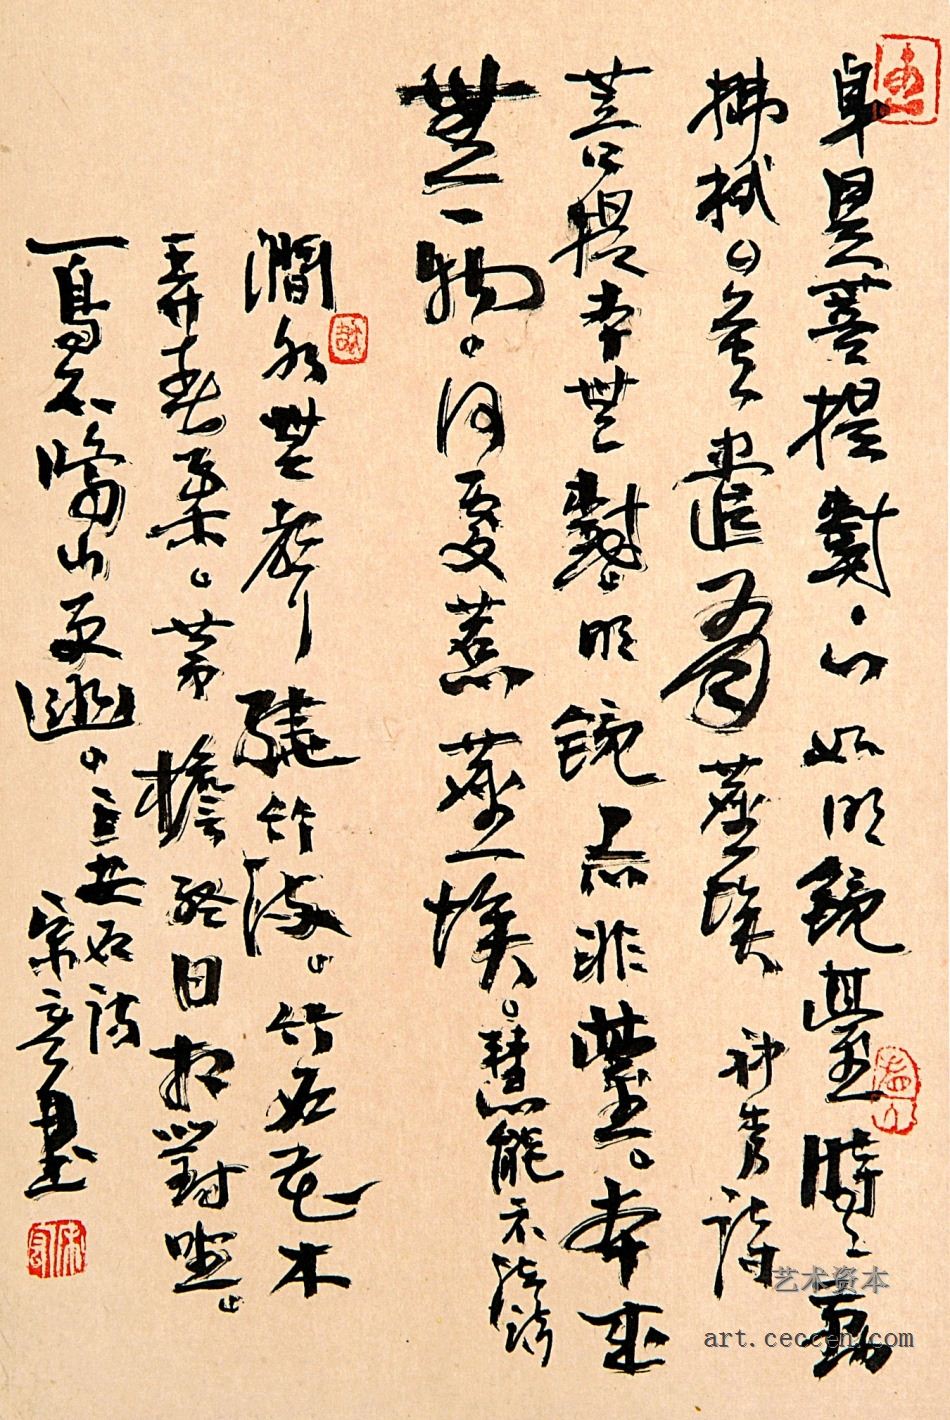 身是菩提樹。心如明鏡臺時々勤
拂拭。莫遣有塵埃 神秀詩
菩提本無樹。明鏡亦非臺。本來
無一物。何處惹塵埃。慧能示法詩
澗水無聲繞竹流。竹西花木
弄春柔。茅檐終日相對坐。
一鳥不啼山更幽。王安石詩
書
艺术资本
art.ceccen.com